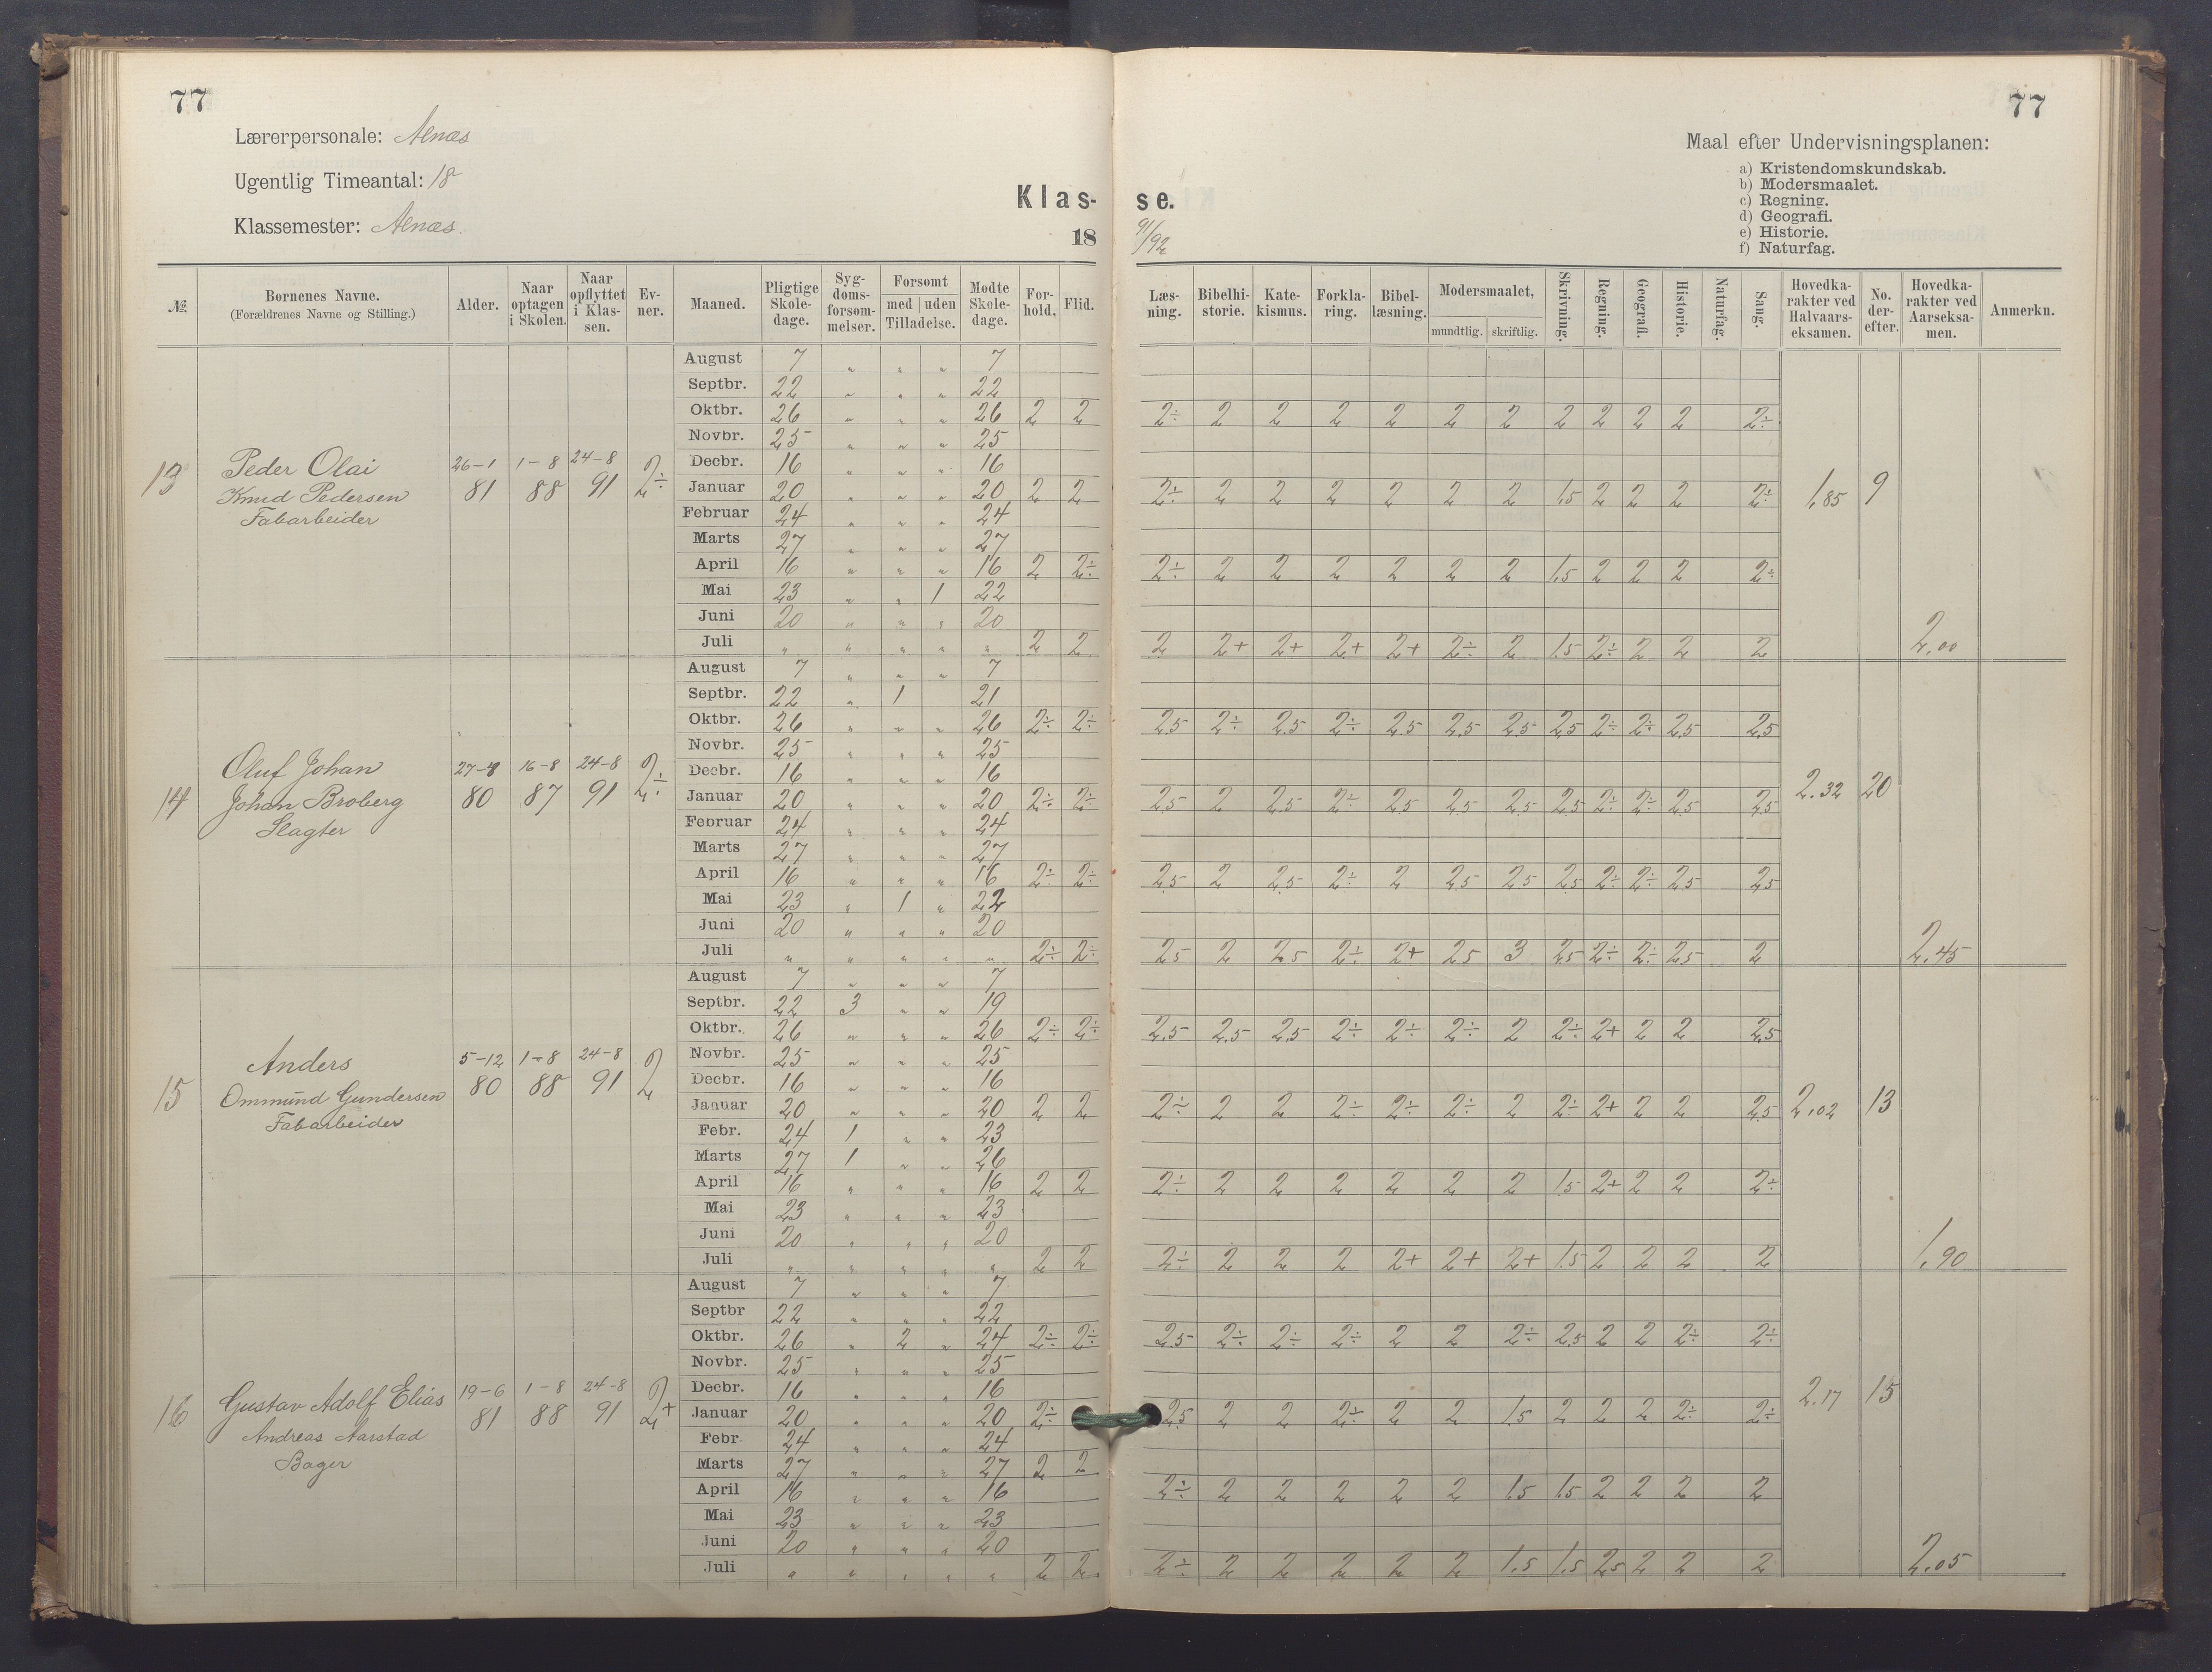 77
77
Lærerpersonale: Alnæs
Ugentlig Timeantal: 18
Klassemester: Alnæs.
Klas- se.
18 91/92
Maal efter Undervisningsplanen:
a) Kristendomskundskab.
b) Modersmaalet.
c) Regning.
d) Geografi.
e) Historie.
f) Naturfag.
№ | Børnenes Navne. (Forældrenes Navne og Stilling.) | Alder. | Naar optagen i Skolen. | Naar opflyttet i Klassen. | Evner. | Maaned. | Pligtige Skoledage. | Sygdomsforsømmelser. | Forsømt med uden Tilladelse. | Mødte Skoledage. | Forhold. | Flid. | Læsning. | Bibelhistorie. | Katekismus. | Forklaring. | Bibellæsning. | Modersmaalet, mundtlig. skriftlig. | Skrivning. | Regning. | Geografi. | Historie. | Naturfag. | Sang. | Hovedkarakter ved Halvaarseksamen. | No. derefter. | Hovedkarakter ved Aarseksamen. | Anmerkn.
13 Peder Olai 26-1 81 1-8 88 24-8 91 2÷ 1,85 9 2,00
Knud Pedersen
Fabarbeider
August 7 " " " 7
Septbr. 22 " " " 22
Oktbr. 26 " " " 26 2 2 2÷ 2 2 2 2 2 2 2 2 2 2 2÷
Novbr. 25 " " " 25
Decbr. 16 " " " 16
Januar 20 " " " 20 2 2 2÷ 2 2 2 2 2 2 1,5 2 2 2 2÷
Februar 24 " " " 24
Marts 27 " " " 27
April 16 " " " 16 2 2÷ 2÷ 2 2 2 2 2 2 1,5 2 2 2 2÷
Mai 23 " " 1 22
Juni 20 " " " 20
Juli " " " " " 2 2 2 2+ 2+ 2+ 2+ 2÷ 2 1,5 2÷ 2 2 2
14 Oluf Johan 27-8 80 16-8 87 24-8 91 2÷ 2.32 20 2,45
Johan Broberg
Slagter
August 7 " " " 7
Septbr. 22 " 1 21
Oktbr. 26 " " " 26 2÷ 2÷ 2,5 2÷ 2,5 2÷ 2,5 2,5 2,5 2,5 2÷ 2÷ 2,5 2,5
Novbr. 25 " " " 25
Decbr. 16 " " " 16
Januar 20 " " " 20 2÷ 2÷ 2,5 2 2,5 2÷ 2,5 2,5 2,5 2,5 2÷ 2÷ 2,5 2,5
Februar 24 " " " 24
Marts 27 " " " 27
April 16 " " " 16 2÷ 2÷ 2,5 2 2,5 2÷ 2 2,5 2,5 2,5 2÷ 2÷ 2,5 2,5
Mai 23 " 1 " 22
Juni 20 " " " 20
Juli " " " " " 2÷ 2÷ 2,5 2 2,5 2÷ 2+ 2,5 3 2,5 2÷ 2÷ 2,5 2
15 Anders 5-12 80 1-8 88 24-8 91 2 2,02 13 1,90
Ommund Gundersen
Fabarbeider
August 7 " " " 7
Septbr. 22 3 " " 19
Oktbr. 26 " " " 26 2÷ 2÷ 2,5 2,5 2,5 2÷ 2÷ 2÷ 2 2÷ 2+ 2 2 2,5
Novbr. 25 " " " 25
Decbr. 16 " " " 16
Januar 20 " " " 20 2 2 2÷ 2 2 2÷ 2÷ 2÷ 2 2÷ 2+ 2 2 2,5
Febr. 24 1 " " 23
Marts 27 1 " " 26
April 16 " " " 16 2 2 2÷ 2 2 2 2 2 2 1,5 2+ 2 2 2÷
Mai 23 " " " 23
Juni 20 " " " 20
Juli " " " " " 2 2 2÷ 2 2 2 2+ 2+ 2+ 1,5 2 2 2 2
16 Gustav Adolf Elias 19-6 81 1-8 88 24-8 91 2+ 2.17 15 2,05
Andreas Aarstad
Bager
August 7 " " " 7
Septbr 22 " " " 22
Oktbr. 26 " 2 " 24 2÷ 2÷ 2,5 2÷ 2÷ 2÷ 2 2 2÷ 2,5 2 2 2÷ 2÷
Novbr. 25 " " " 25
Decbr. 16 " " " 16
Januar 20 " " " 20 2÷ 2,5 2 2 2÷ 2 2 1,5 2 2 2 2÷ 2÷
Febr 24 " " " 24
Marts 27 " " " 27 2 2
April 16 " " " 16 2÷ 2 2 2 2 2 1,5 1,5 2 2 2 2
Mai 23 " " " 23
Juni 20 " " " 20
Juli " " " " " 2 2 2÷ 2 2 2 2 2 1,5 1,5 2,5 2 2 2